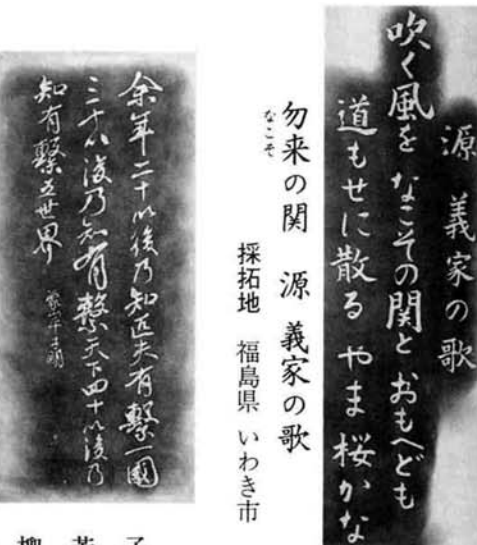 源 義家の歌
吹く風を なこその関と おもへども
道もせに散る やま 桜かな
勿来の関 源 義家の歌
なこそ
採拓地 福島県 いわき市
余年二十以後乃知匹夫有繋一國
三十以後乃知有繋天下四十以後乃
知有繋五世界